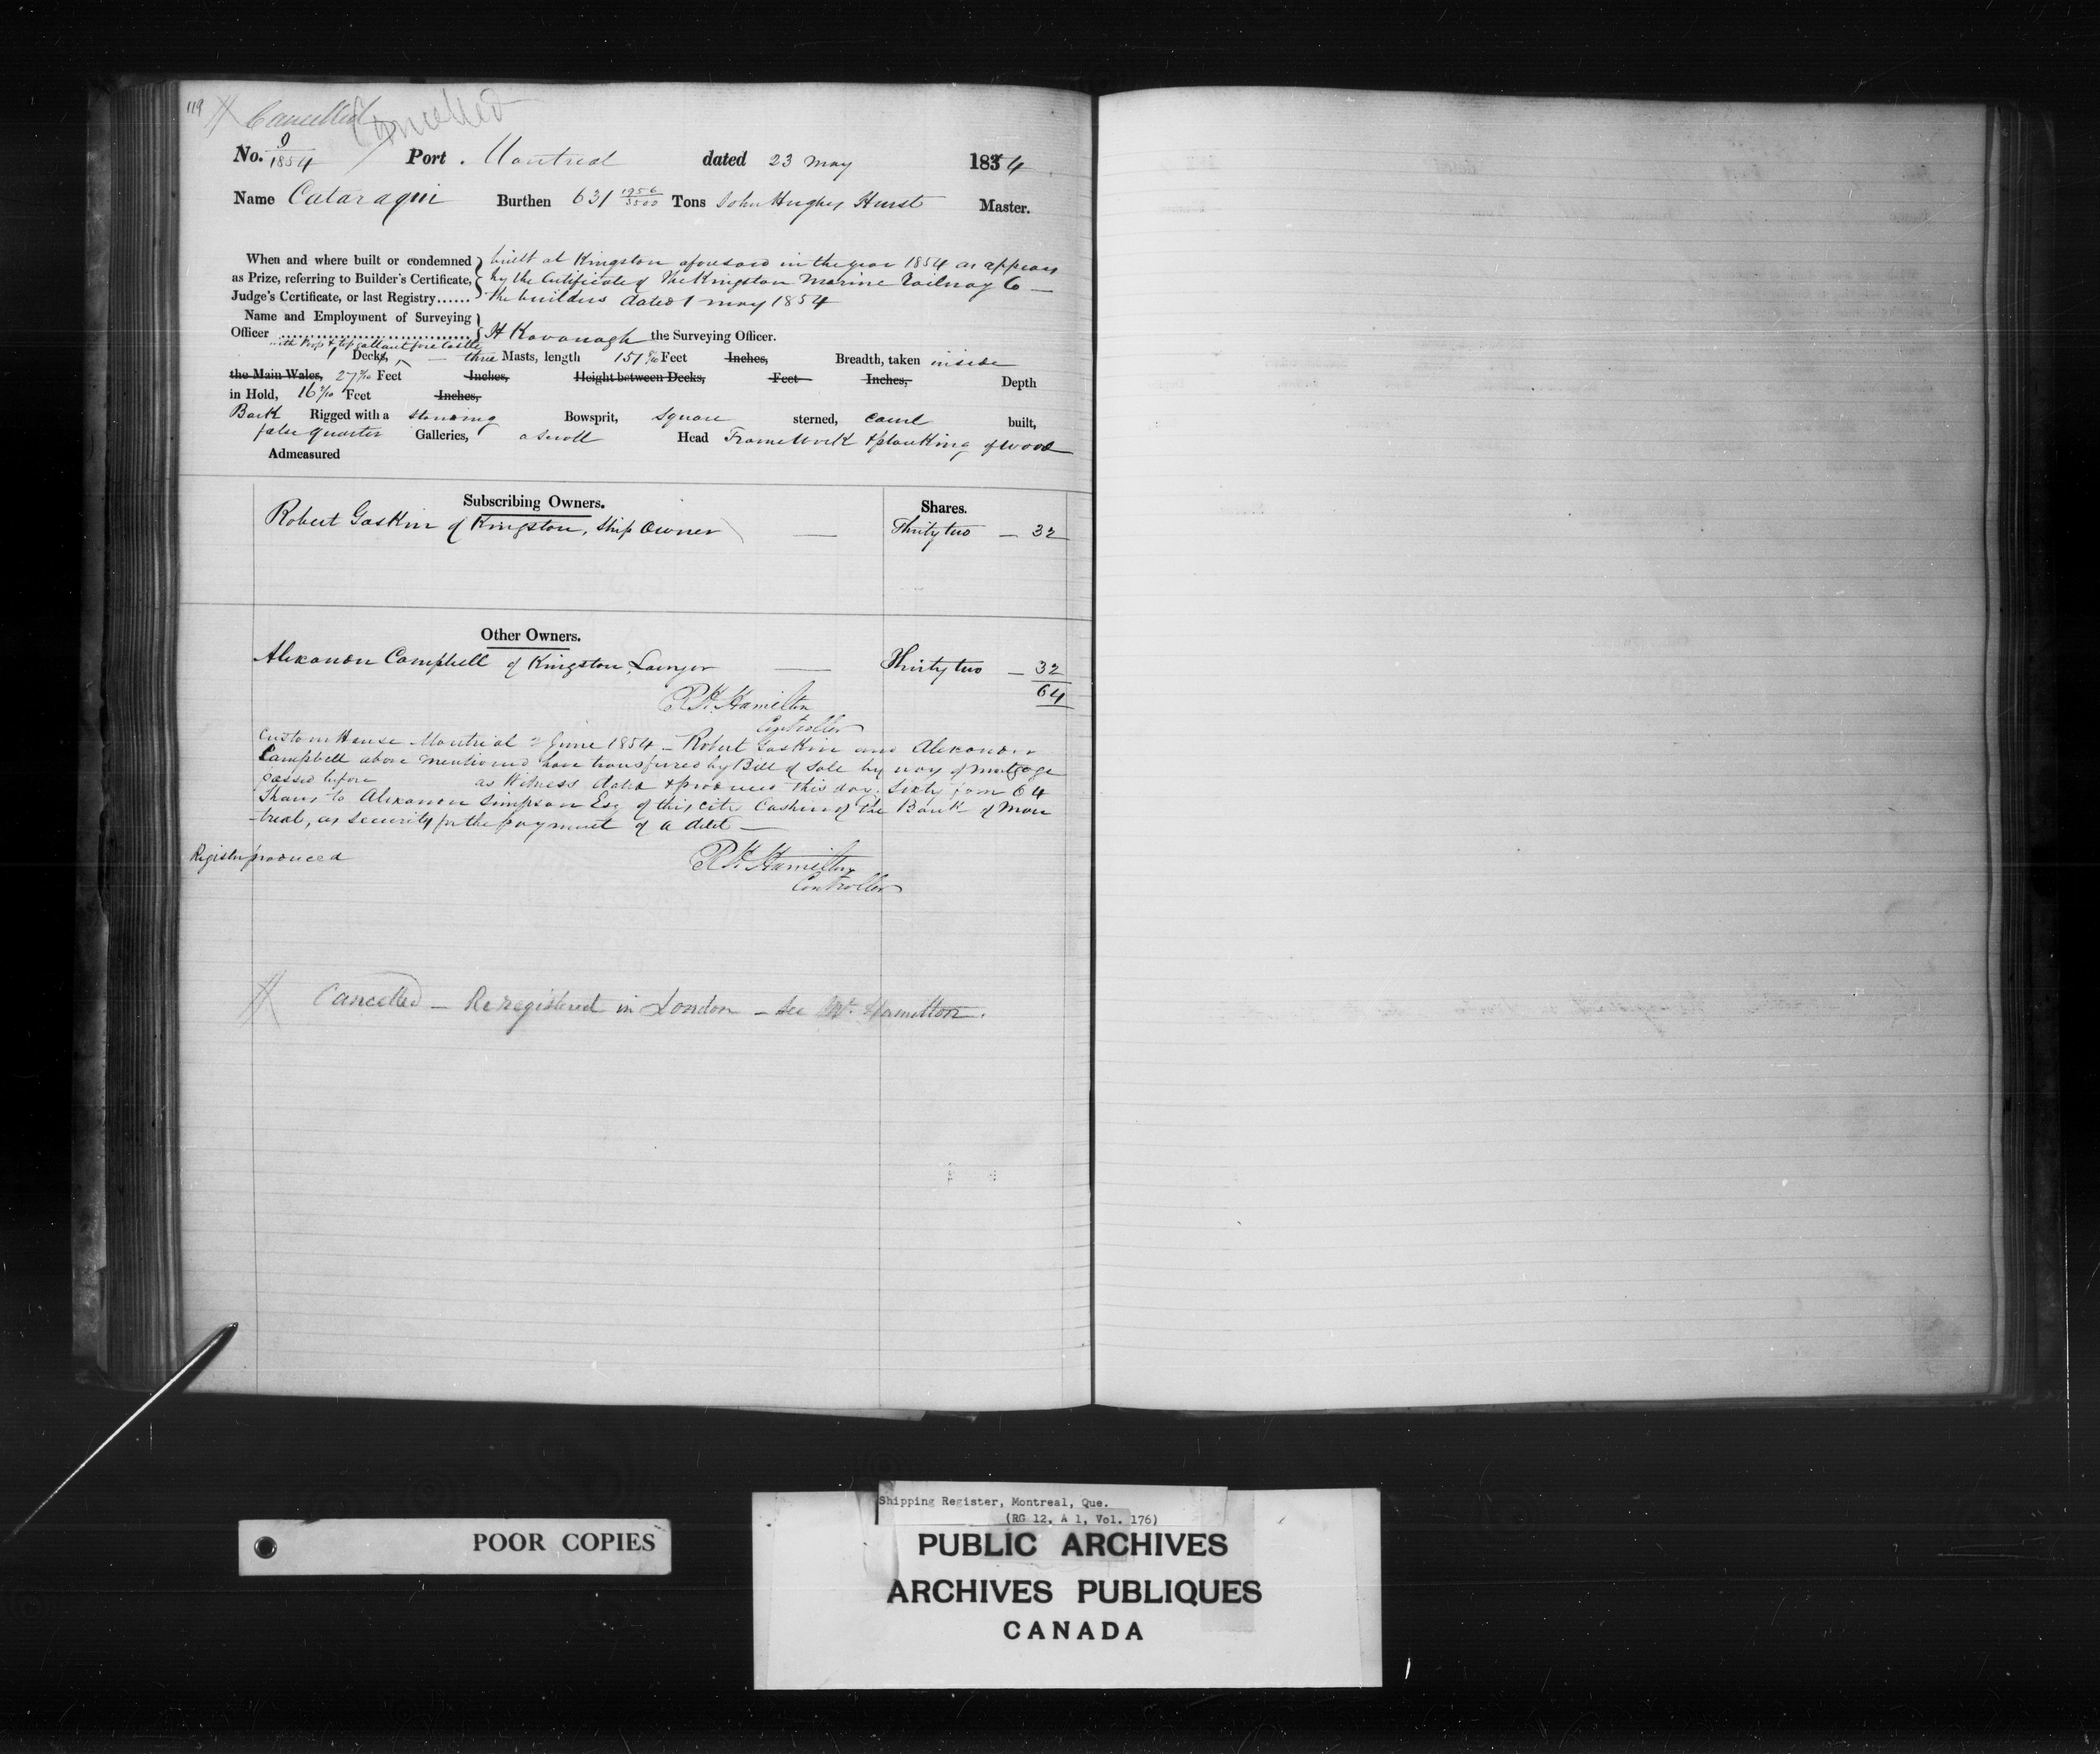 119 Cancelled Cancelled
No. 9/1854 Port. Montreal dated 23 May 1854
Name Cataraqui Burthen 631 1956/3500 Tons John Hughes Hurst Master.
When and where built or condemned as Prize, referring to Builder's Certificate, Judge's Certificate, or last Registry......
built at Kingston aforesaid in the year 1854 as appears
by the Certificate of the Kingston Marine Railway Co —
the builders dated 1 May 1854
Name and Employment of Surveying
Officer .................... H Kavanagh the Surveying Officer.
with Poop & topgallant fore Castle
Decks, — three Masts, length 151 /10 Feet Inches, Breadth, taken inside
the Main Wales, 27 /10 Feet Inches, Height between Decks, Feet Inches, Depth
in Hold, 16 /10 Feet Inches,
Bark Rigged with a standing Bowsprit, square sterned, carvel built,
false quarter Galleries, a scroll Head Framework & planking of wood
Admeasured
Subscribing Owners. Shares.
Robert Gaskin of Kingston, Ship Owner — Thirty two — 32
Other Owners.
Alexander Campbell of Kingston, Lawyer — Thirty two — 32
64
R. H. Hamilton
Controller
Custom House Montreal 2 June 1854 — Robert Gaskin and Alexander
Campbell above mentioned have transferred by Bill of Sale by way of mortgage
passed before as Witness dated & produced this day. Sixty four 64
Shares to Alexander Simpson Esq of this city Cashier of the Bank of Mon
-treal, as security for the payment of a debt —
Register produced
R. H. Hamilton
Controller
Cancelled — Reregistered in London — See Mr. Hamilton.
POOR COPIES
Shipping Register, Montreal, Que.
(RG 12, A 1, Vol. 176)
PUBLIC ARCHIVES
ARCHIVES PUBLIQUES
CANADA